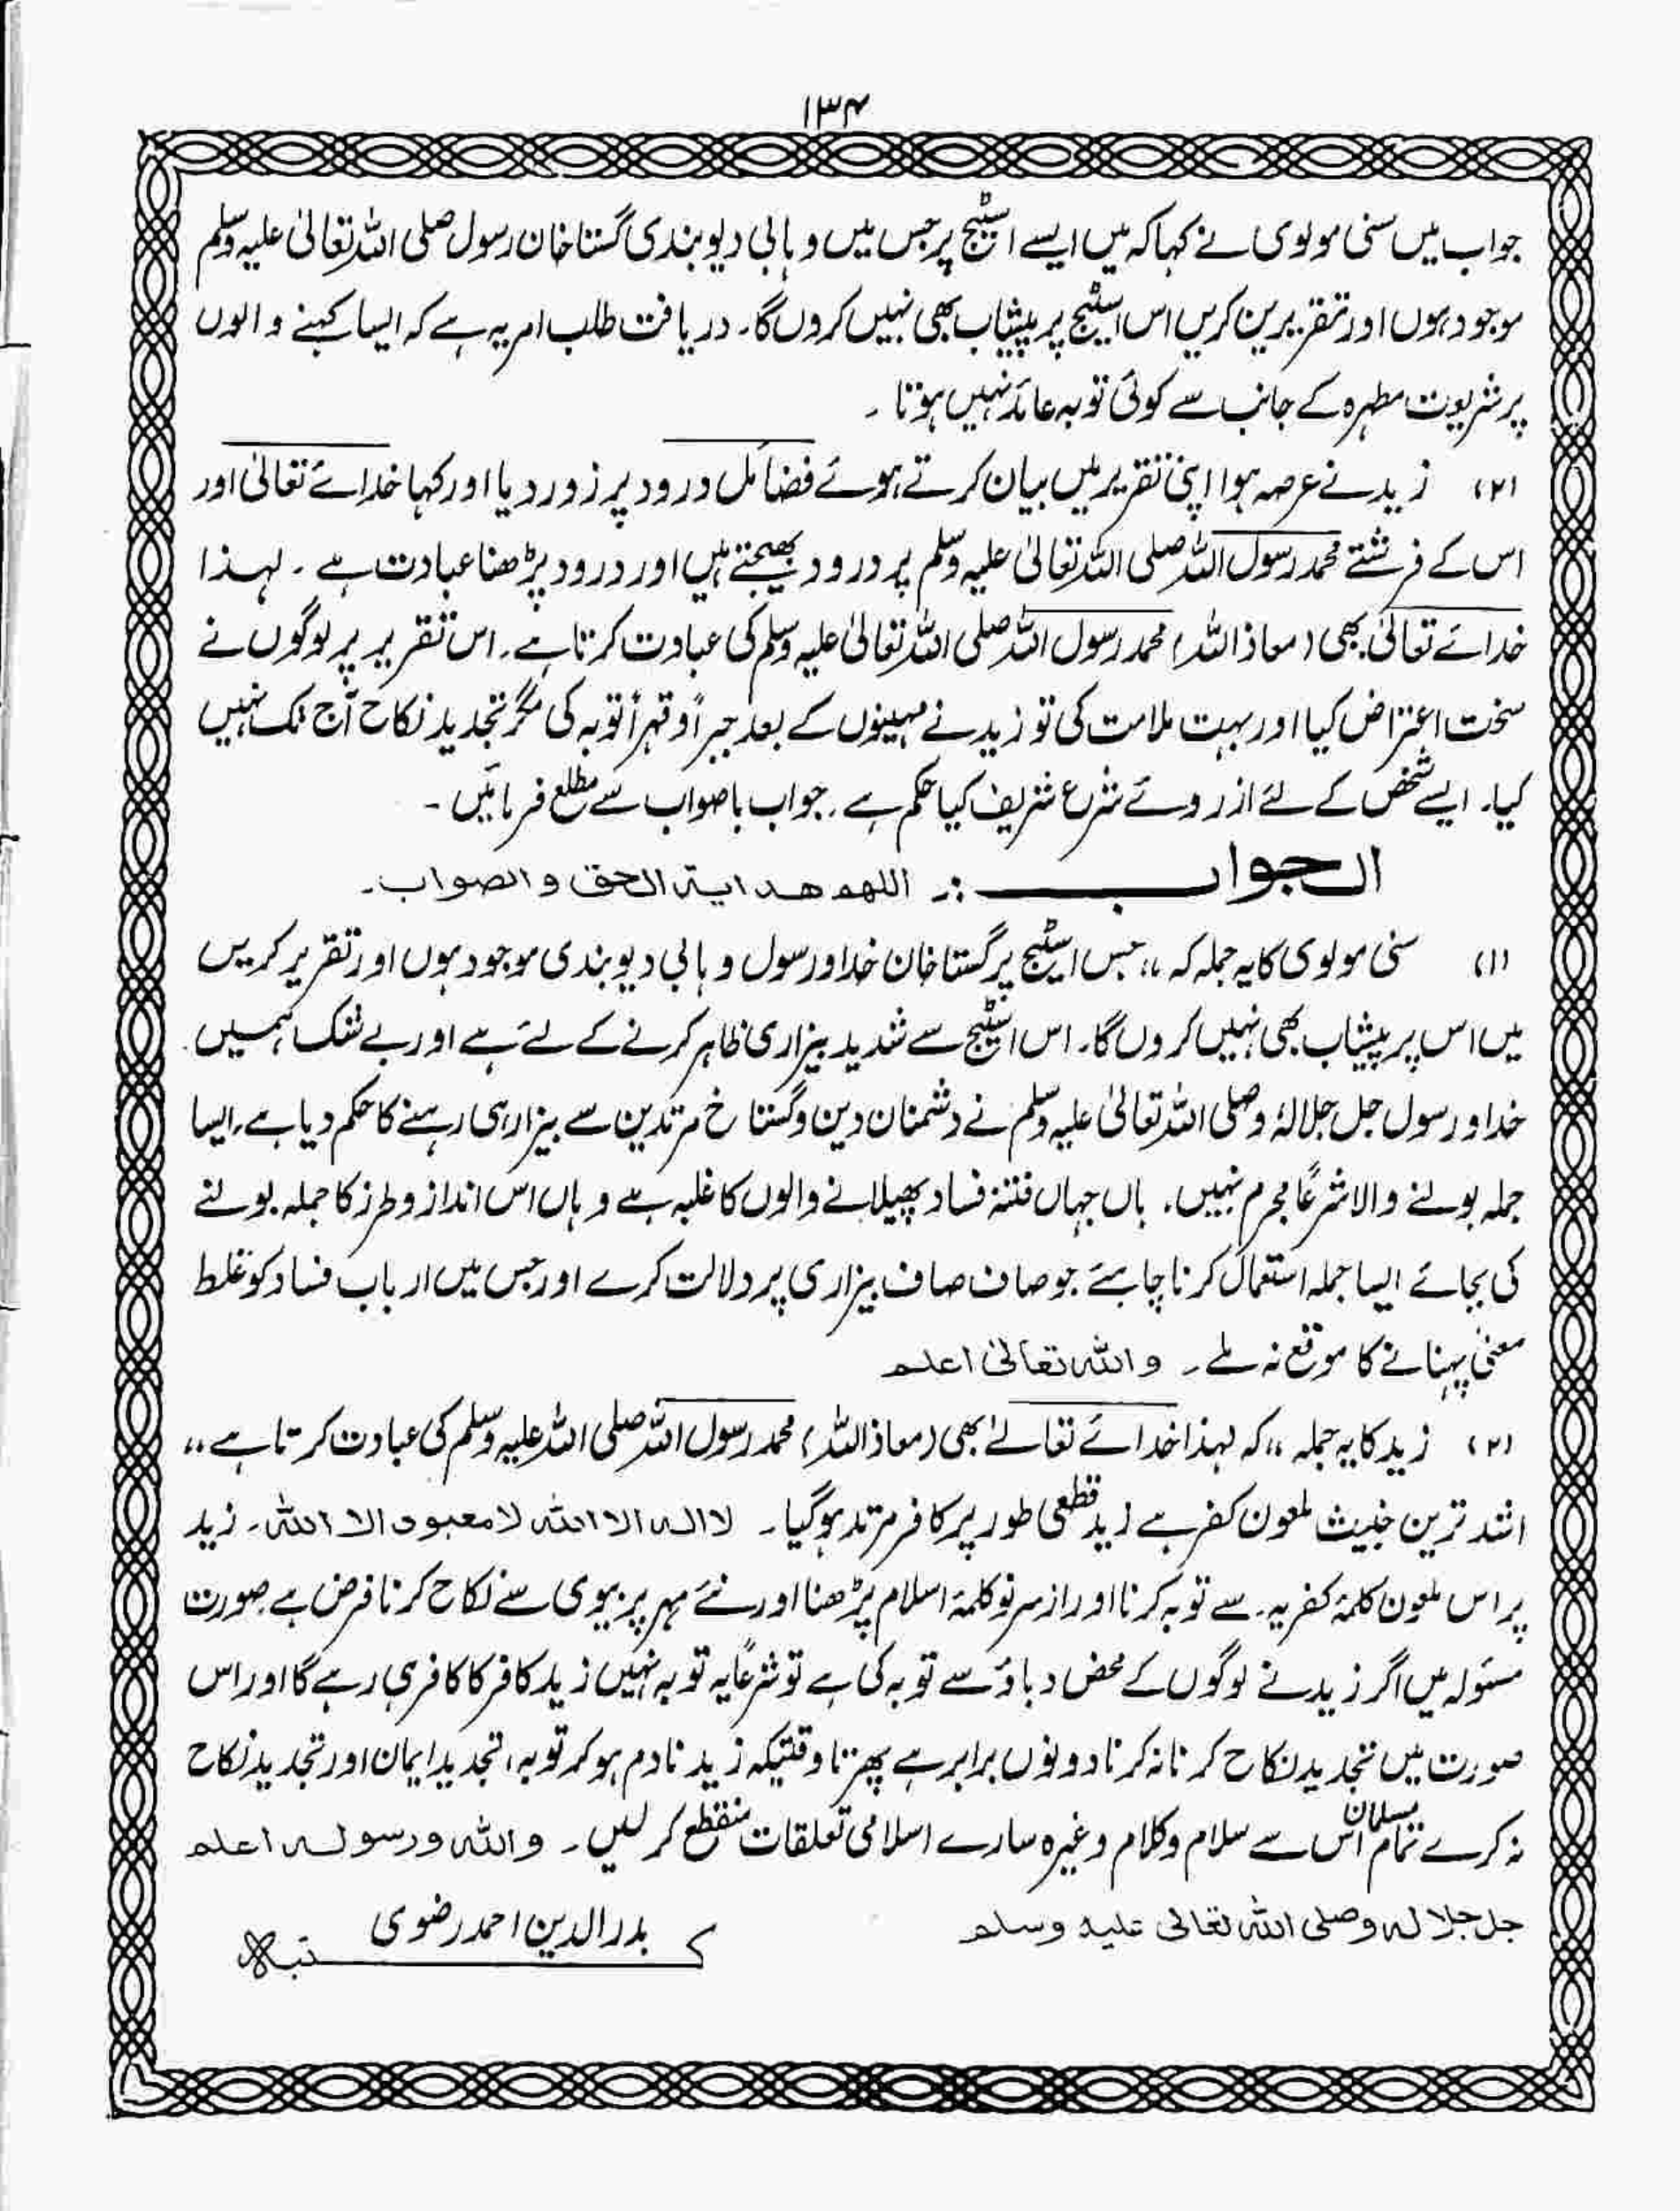 ۱۳۴
جواب میں سنی مولوی نے کہا کہ میں ایسے اسٹیج پر جس میں وہابی دیوبندی گستاخان رسول صلی اللہ تعالیٰ علیہ وسلم
موجود ہوں اور تقریریں کریں اس اسٹیج پر پیشاب بھی نہیں کروں گا۔ دریافت طلب امر یہ ہے کہ ایسا کہنے والوں
پر شریعت مطہرہ کے جانب سے کوئی توبہ عائد نہیں ہوتا ۔
(۲) زید نے عرصہ ہوا اپنی تقریر میں بیان کرتے ہوئے فضائل درود پر زور دیا اور کہا خدائے تعالیٰ اور
اس کے فرشتے محمد رسول اللہ صلی اللہ تعالیٰ علیہ وسلم پر درود بھیجتے ہیں اور درود پڑھنا عبادت ہے ۔ لہٰذا
خدائے تعالیٰ بھی (معاذ اللہ) محمد رسول اللہ صلی اللہ تعالیٰ علیہ وسلم کی عبادت کرتا ہے۔ اس تقریر پر لوگوں نے
سخت اعتراض کیا اور بہت ملامت کی تو زید نے مہینوں کے بعد جبراً وقہراً توبہ کی مگر تجدید نکاح آج تک نہیں
کیا۔ ایسے شخص کے لئے ازروئے شرع شریف کیا حکم ہے۔ جواب باصواب سے مطلع فرمائیں ۔
الجواب :۔ اللھم ھدایۃ الحق والصواب۔
(۱) سنی مولوی کا یہ جملہ کہ ،،جس اسٹیج پر گستاخان خدا ورسول وہابی دیوبندی موجود ہوں اور تقریر کریں
میں اس پر پیشاب بھی نہیں کروں گا۔ اس اسٹیج سے شدید بیزاری ظاہر کرنے کے لئے ہے اور بے شک ہمیں
خدا ورسول جل جلالہٗ وصلی اللہ تعالیٰ علیہ وسلم نے دشمنان دین وگستاخ مرتدین سے بیزار ہی رہنے کا حکم دیا ہے۔ ایسا
جملہ بولنے والا شرعاً مجرم نہیں۔ ہاں جہاں فتنہ فساد پھیلانے والوں کا غلبہ ہے وہاں اس انداز وطرز کا جملہ بولنے
کی بجائے ایسا جملہ استعمال کرنا چاہئے جو صاف صاف بیزاری پر دلالت کرے اور جس میں ارباب فساد کو غلط
معنیٰ پہنانے کا موقع نہ ملے ۔ واللہ تعالیٰ اعلم
(۲) زید کا یہ جملہ ،،کہ لہٰذا خدائے تعالےٰ بھی (معاذ اللہ) محمد رسول اللہ صلی اللہ علیہ وسلم کی عبادت کرتا ہے،،
اشد ترین خبیث ملعون کفر ہے زید قطعی طور پر کافر مرتد ہوگیا۔ لا الہ الا اللہ لا معبود الا اللہ۔ زید
پر اس ملعون کلمۂ کفریہ۔ سے توبہ کرنا اور از سر نو کلمۂ اسلام پڑھنا اور نئے مہر پر بیوی سے نکاح کرنا فرض ہے صورت
مسئولہ میں اگر زید نے لوگوں کے محض دباؤ سے توبہ کی ہے تو شرعاً یہ توبہ نہیں زید کافر کا کافر ہی رہے گا اور اس
صورت میں تجدید نکاح کرنا نہ کرنا دونوں برابر ہے پھر تا وقتیکہ زید نادم ہوکر توبہ، تجدید ایمان اور تجدید نکاح
نہ کرے تمام مسلمان اس سے سلام وکلام وغیرہ سارے اسلامی تعلقات منقطع کرلیں ۔ واللہ ورسولہ اعلم
جل جلالہ وصلی اللہ تعالیٰ علیہ وسلم
کتبہ بدر الدین احمد رضوی